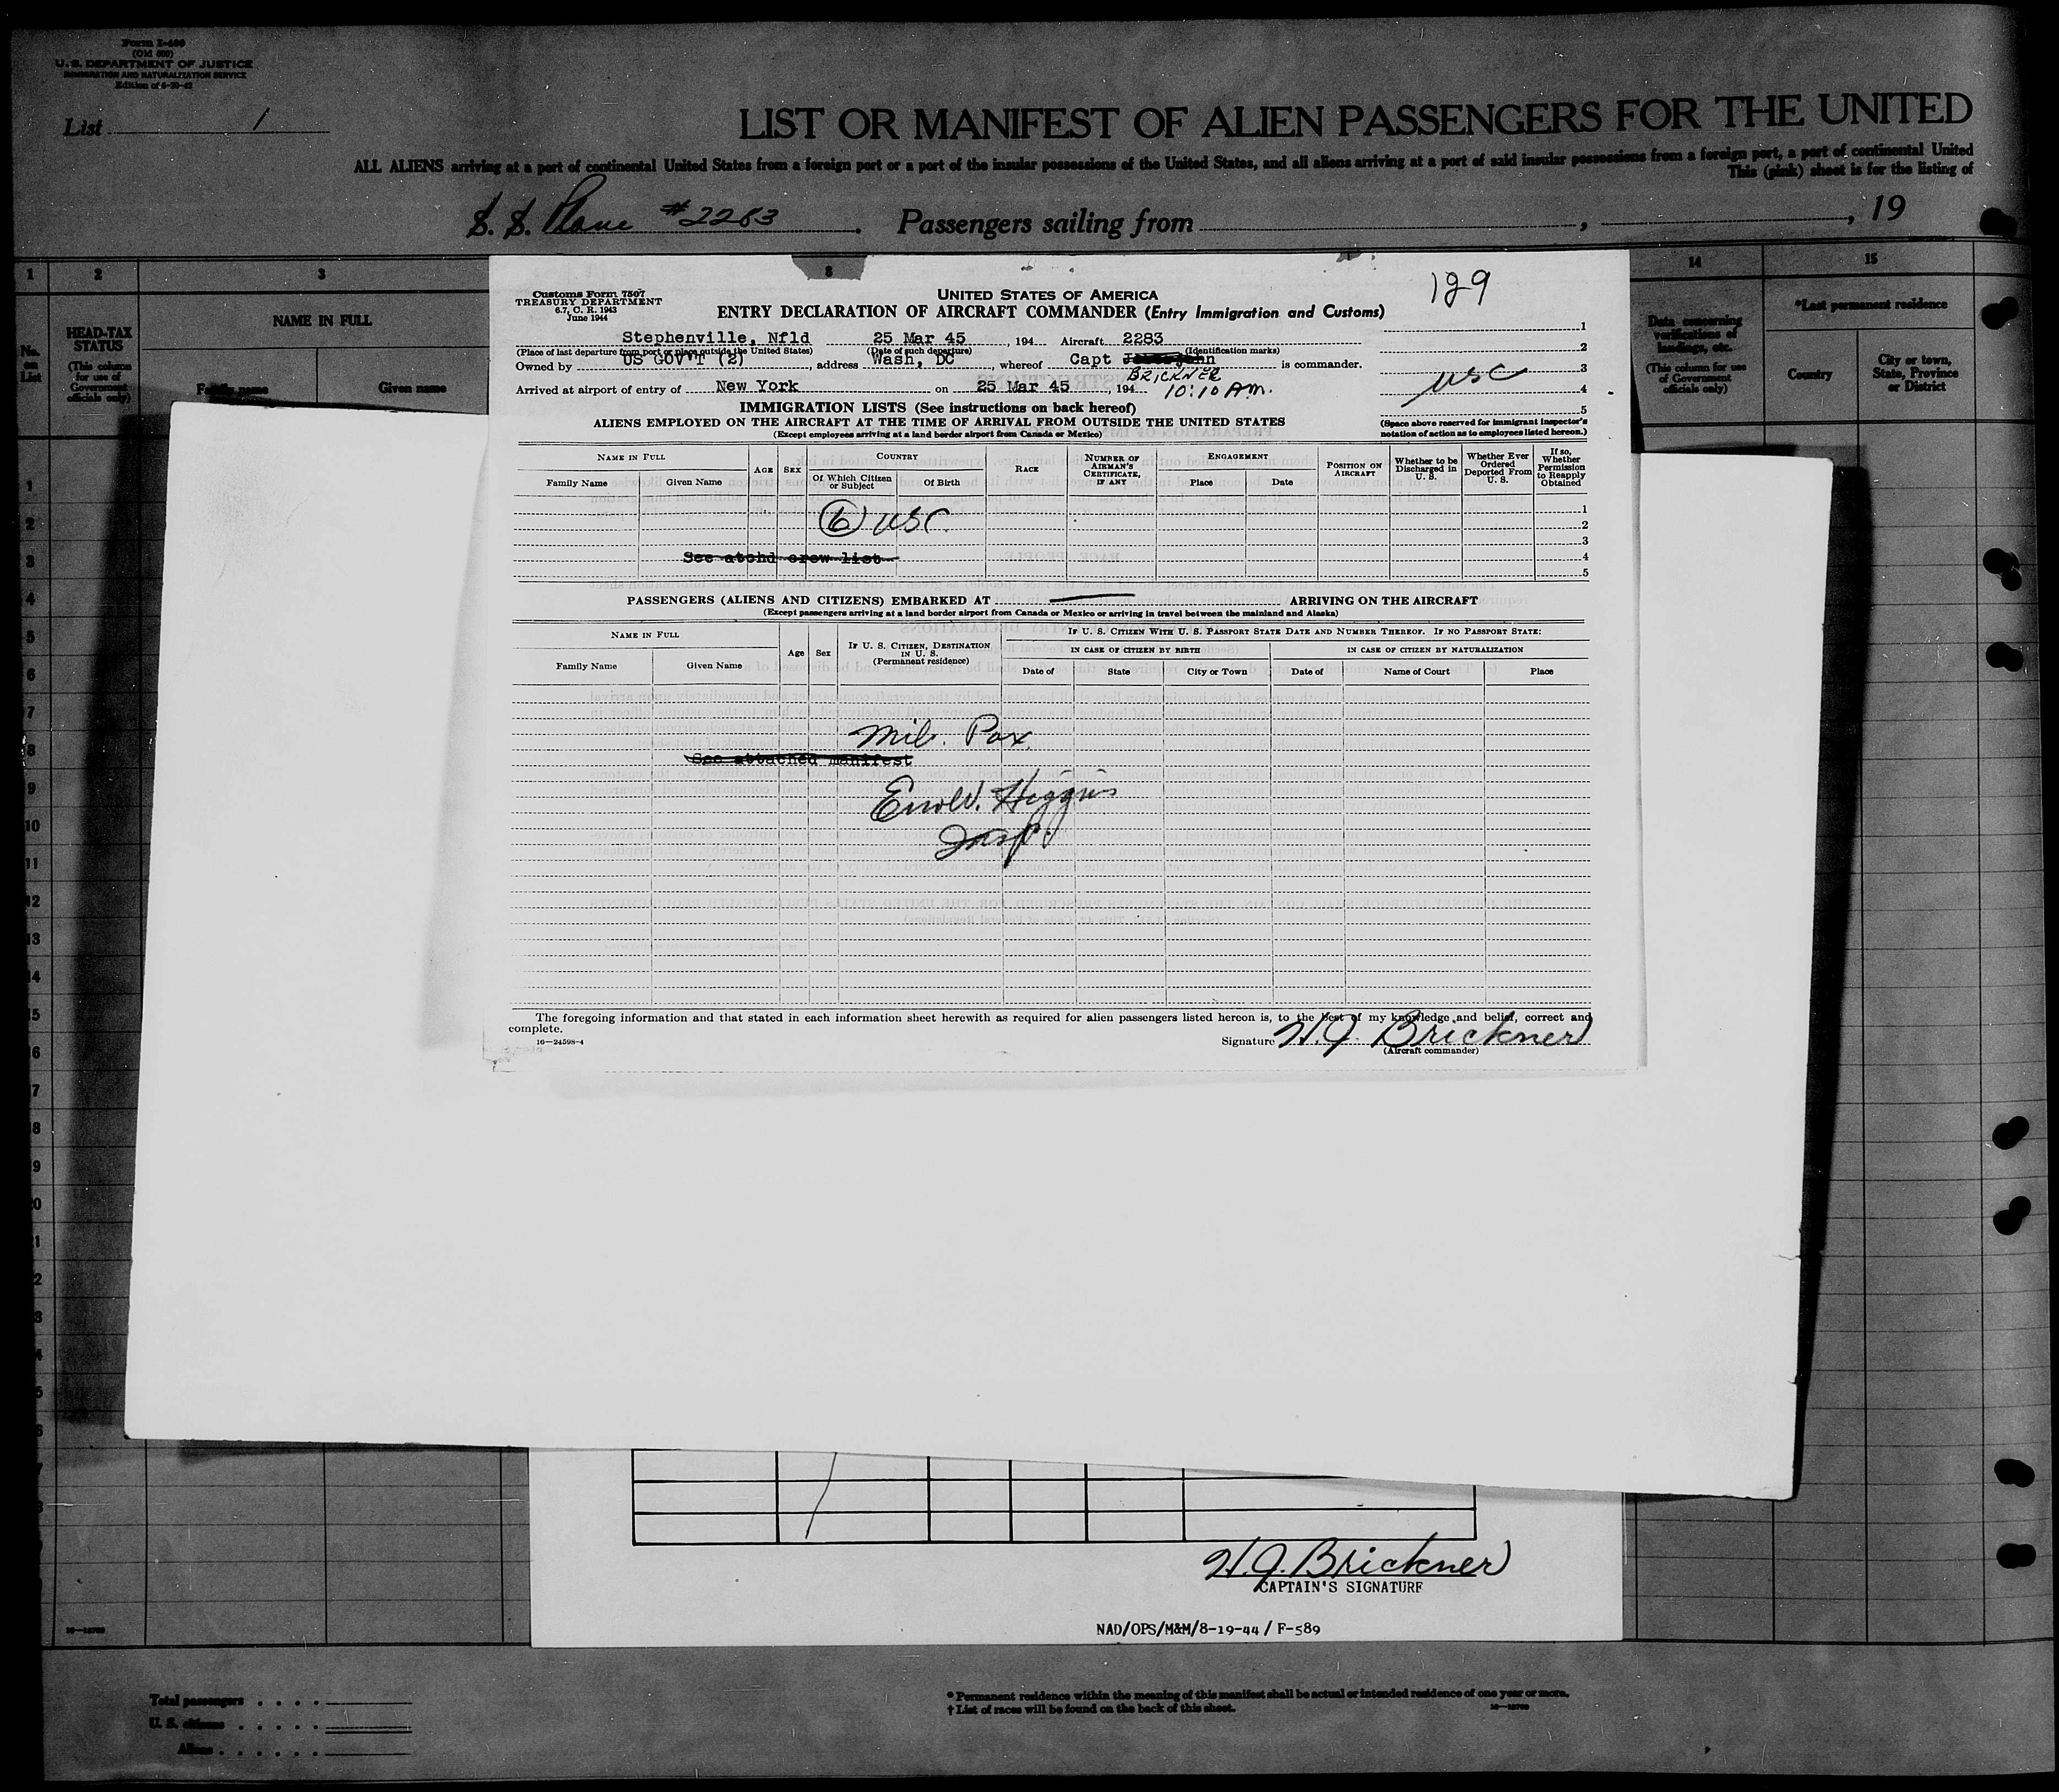 Form I-466
(Old 500)
U. S. DEPARTMENT OF JUSTICE
IMMIGRATION AND NATURALIZATION SERVICE
List 1
LIST OR MANIFEST OF ALIEN PASSENGERS FOR THE UNITED
ALL ALIENS arriving at a port of continental United States from a foreign port or a port of the insular possessions of the United States, and all aliens arriving at a port of said insular possessions from a foreign port, a port of continental United
This (pink) sheet is for the listing of
S. S. Plane #2283. Passengers sailing from , , 19
1 2 3 8 14 15
No. on List
HEAD-TAX STATUS
(This column for use of Government officials only)
NAME IN FULL
Family name Given name
Data concerning verifications of landings, etc.
(This column for use of Government officials only)
*Last permanent residence
Country
City or town, State, Province or District
Customs Form 7507
TREASURY DEPARTMENT
6.7, C. R. 1943
June 1944
129
UNITED STATES OF AMERICA
ENTRY DECLARATION OF AIRCRAFT COMMANDER (Entry Immigration and Customs)
Stephenville, Nfld 25 Mar 45, 194 Aircraft 2283
(Place of last departure from port or place outside the United States) (Date of such departure) (Identification marks)
Owned by US GOV'T (2), address Wash, DC whereof Capt is commander.
BRICKNER
Arrived at airport of entry of New York on 25 Mar 45, 194 10:10 AM.
1
2
3
4
5
USC
IMMIGRATION LISTS (See instructions on back hereof)
ALIENS EMPLOYED ON THE AIRCRAFT AT THE TIME OF ARRIVAL FROM OUTSIDE THE UNITED STATES
(Except employees arriving at a land border airport from Canada or Mexico)
(Space above reserved for immigrant inspector's notation of action as to employees listed hereon.)
NAME IN FULL
Family Name Given Name
AGE SEX
COUNTRY
Of Which Citizen or Subject Of Birth
RACE
NUMBER OF AIRMAN'S CERTIFICATE, IF ANY
ENGAGEMENT
Place Date
POSITION ON AIRCRAFT
Whether to be Discharged in U. S.
Whether Ever Ordered Deported From U. S.
If so, Whether Permission to Reapply Obtained
1
2
3
4
5
(6) USC
See atchd crew list
PASSENGERS (ALIENS AND CITIZENS) EMBARKED AT ARRIVING ON THE AIRCRAFT
(Except passengers arriving at a land border airport from Canada or Mexico or arriving in travel between the mainland and Alaska)
NAME IN FULL
Family Name Given Name
Age Sex
IF U. S. CITIZEN, DESTINATION IN U. S.
(Permanent residence)
IF U. S. CITIZEN WITH U. S. PASSPORT STATE DATE AND NUMBER THEREOF. IF NO PASSPORT STATE:
IN CASE OF CITIZEN BY BIRTH IN CASE OF CITIZEN BY NATURALIZATION
Date of State City or Town Date of Name of Court Place
Mil. Pax
See attached manifest
Higgins
Insp.
The foregoing information and that stated in each information sheet herewith as required for alien passengers listed hereon is, to the best of my knowledge and belief, correct and
complete.
16—24598-4
Signature H. J. Brickner
(Aircraft commander)
H. J. Brickner
CAPTAIN'S SIGNATURE
NAD/OPS/M&M/8-19-44 / F-589
Total passengers
U. S. citizens
Aliens
* Permanent residence within the meaning of this manifest shall be actual or intended residence of one year or more.
† List of races will be found on the back of this sheet.